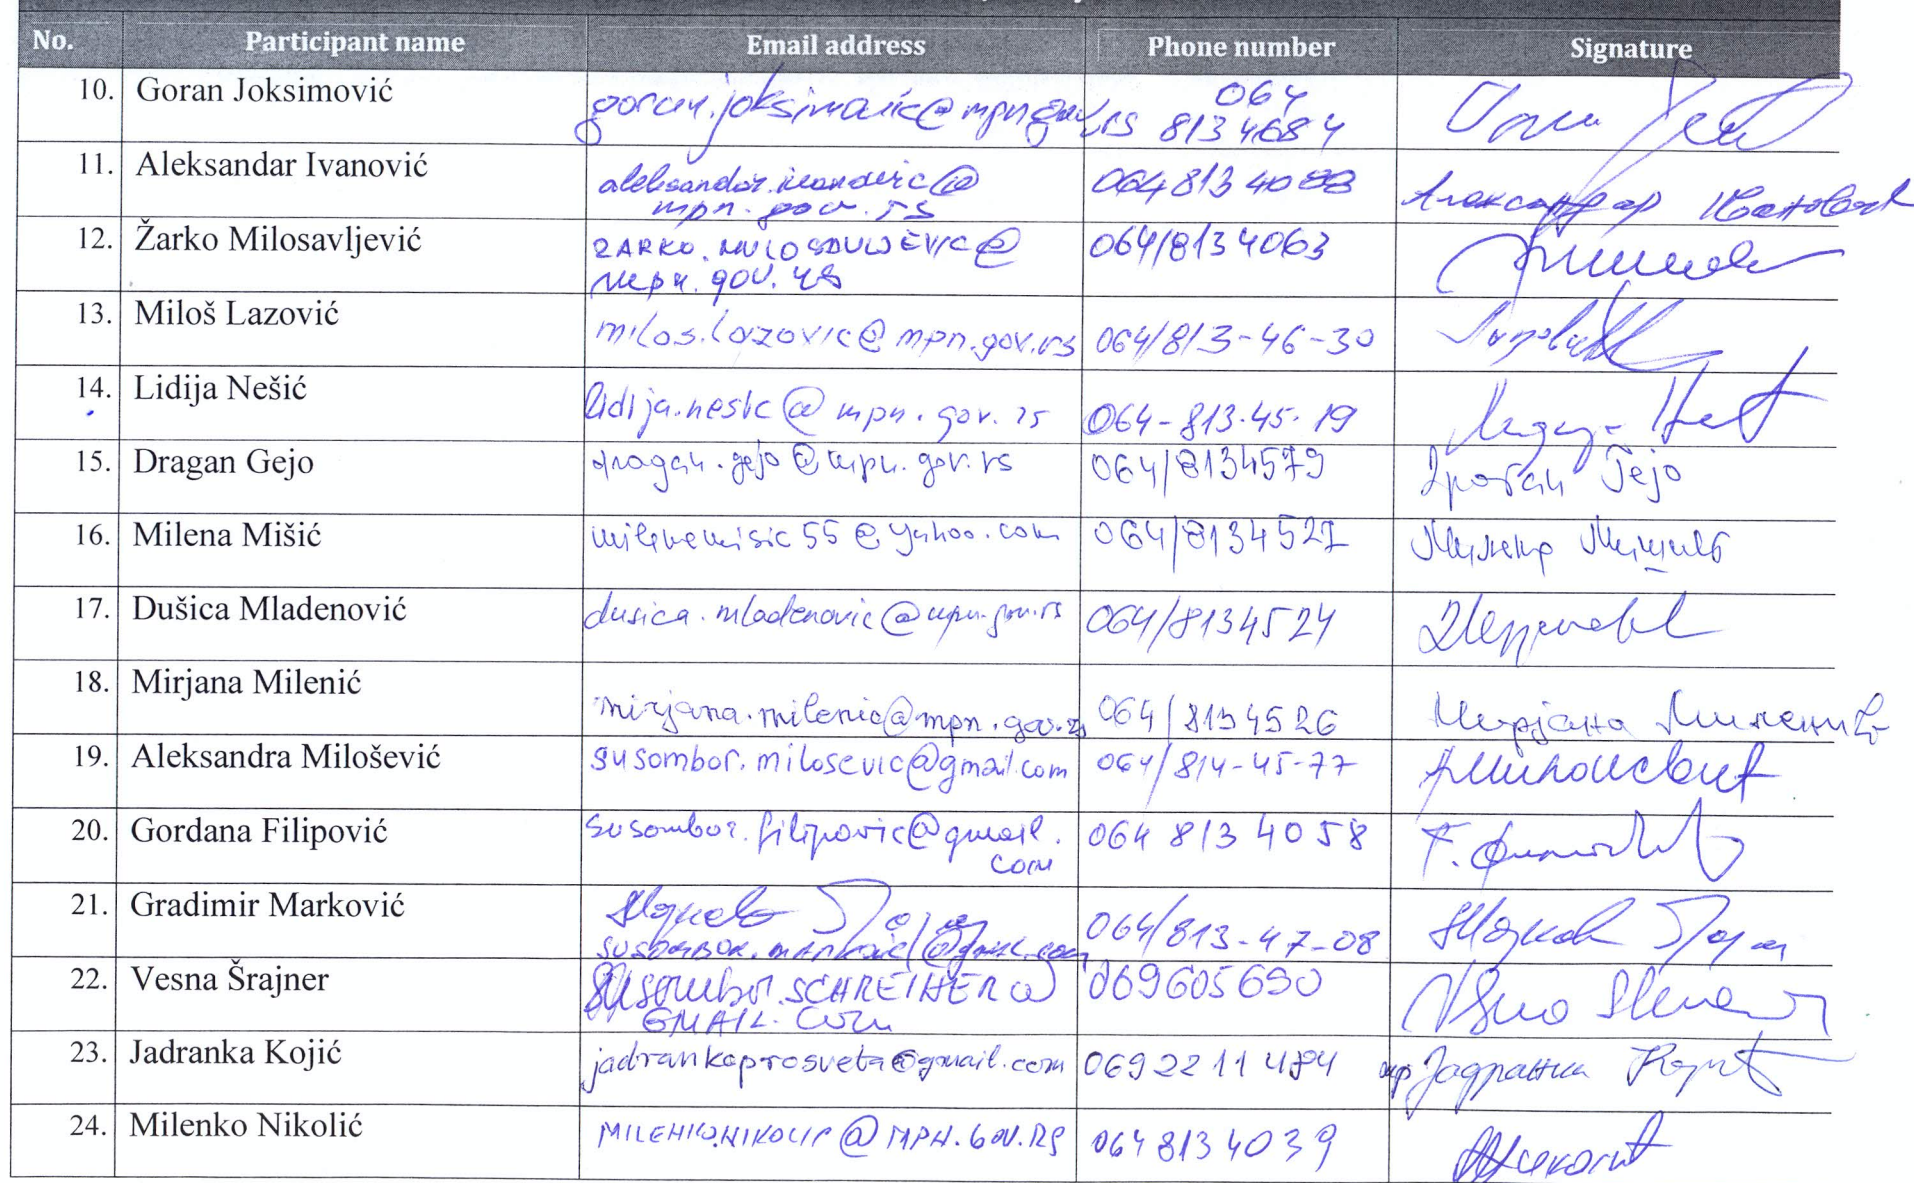 No. Participant name Email address Phone number Signature
10. Goran Joksimović goran.joksimovic@mpn.gov.rs 064
8134684
11. Aleksandar Ivanović aleksandar.ivanovic@ 064 813 4088 Александар Ивановић
mpn.gov.rs
12. Žarko Milosavljević ZARKO.MILOSAVLJEVIC@ 064/8134063
mpn.gov.rs
13. Miloš Lazović milos.lazovic@mpn.gov.rs 064/813-46-30
14. Lidija Nešić lidija.nesic@mpn.gov.rs 064-813-45-19
15. Dragan Gejo dragan.gejo@mpn.gov.rs 064/8134579 Драган Гејо
16. Milena Mišić milenamisic55@yahoo.com 064/8134527 Милена Мишић
17. Dušica Mladenović dusica.mladenovic@mpn.gov.rs 064/8134524
18. Mirjana Milenić mirjana.milenic@mpn.gov.rs 064/8134526 Мирјана Миленић
19. Aleksandra Milošević susombor.milosevic@gmail.com 064/814-45-77 АМилошевић
20. Gordana Filipović susombor.filipovic@gmail. 064 813 4058 Г. Филиповић
com
21. Gradimir Marković 064/813-47-08
susombor.markovic@gmail.com
22. Vesna Šrajner susombor.SCHREINER@ 069605690
GMAIL.com
23. Jadranka Kojić jadrankaprosveta@gmail.com 069 22 11 484 мр Јадранка Којић
24. Milenko Nikolić MILENKO.NIKOLIC@MPN.GOV.RS 064 813 4039